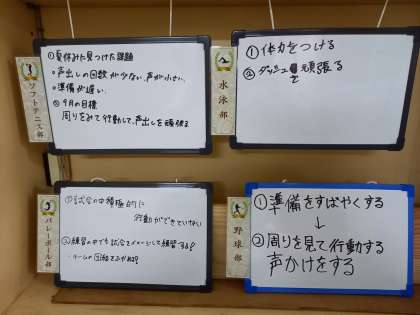 ソフトテニス部
①夏休みに見つけた課題
・声出しの回数が少ない、声が小さい。
・準備が遅い。
② 9月の目標
周りをみて行動して、声出しを頑張る
水泳部
①体力をつける
②ダッシュを頑張る
バレーボール部
①試合の中積極的に
行動ができていない
②練習の中でも試合をイメージして練習する!
・チームの
野球部
①準備をすばやくする
↓
②周りを見て行動する
声かけをする